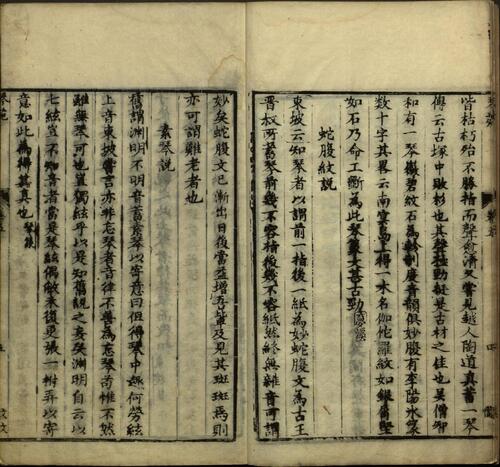 皆枯朽殆不勝指而聲愈清又嘗見越人陶道真畜一琴
傳云古塚中敗杉也其聲極勁挺是古材之佳也吳僧智
和有一琴徽碧紋石為軫制度音韻俱妙腹有李陽冰篆
數十字其畧云南溟島上得一木名伽陀羅紋如銀屑堅
如石乃命工斲為此琴篆文甚古勁
蛇腹紋說
東坡云知琴者以謂前一指後一紙為妙蛇腹文為古王
晉叔所蓄琴前幾不容指後幾不容紙然終無雜音可謂
妙矣蛇腹文已漸出日後當益增吾輩及見其斑斑焉則
亦可謂難老者也
素琴說
舊謂淵明不明音蓄素琴以寄意曰但得琴中趣何勞絃
上音東坡嘗言亦非忘琴者音律不害為忘琴苟惟不然
雖無琴可也豈獨絃乎以是知舊說之妄矣淵明自云以
七絃豈不知音者當是琴絃偶敝未復更張一拊弄以寄
意如此為得其真也